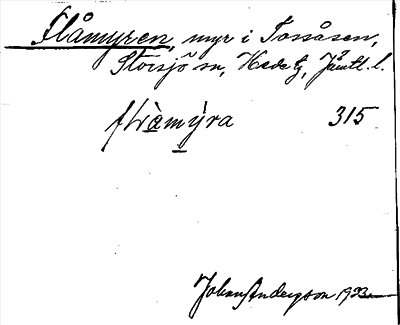 Flåmyren, myr i Tossåsen,
Storsjö sn, Hede tg, Jämtl. l.
315
Johan Anderson 1933